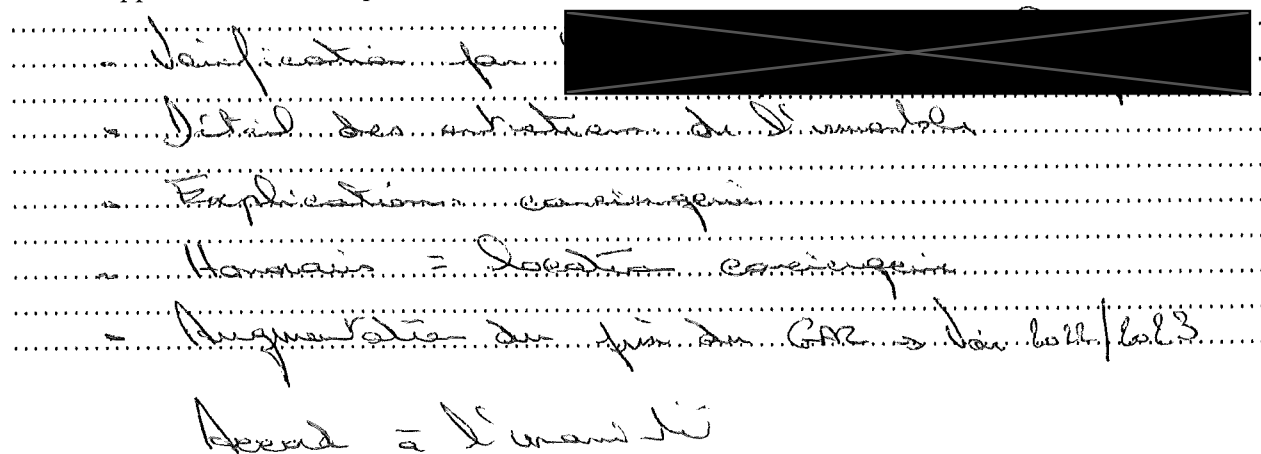 - Vérification par
- Détail des entretiens de l'immeuble
- Explications conciergerie
- Honoraires = location conciergerie
- Augmentation du prix du GAZ → Voir 2022/2023
Accord à l'unanimité